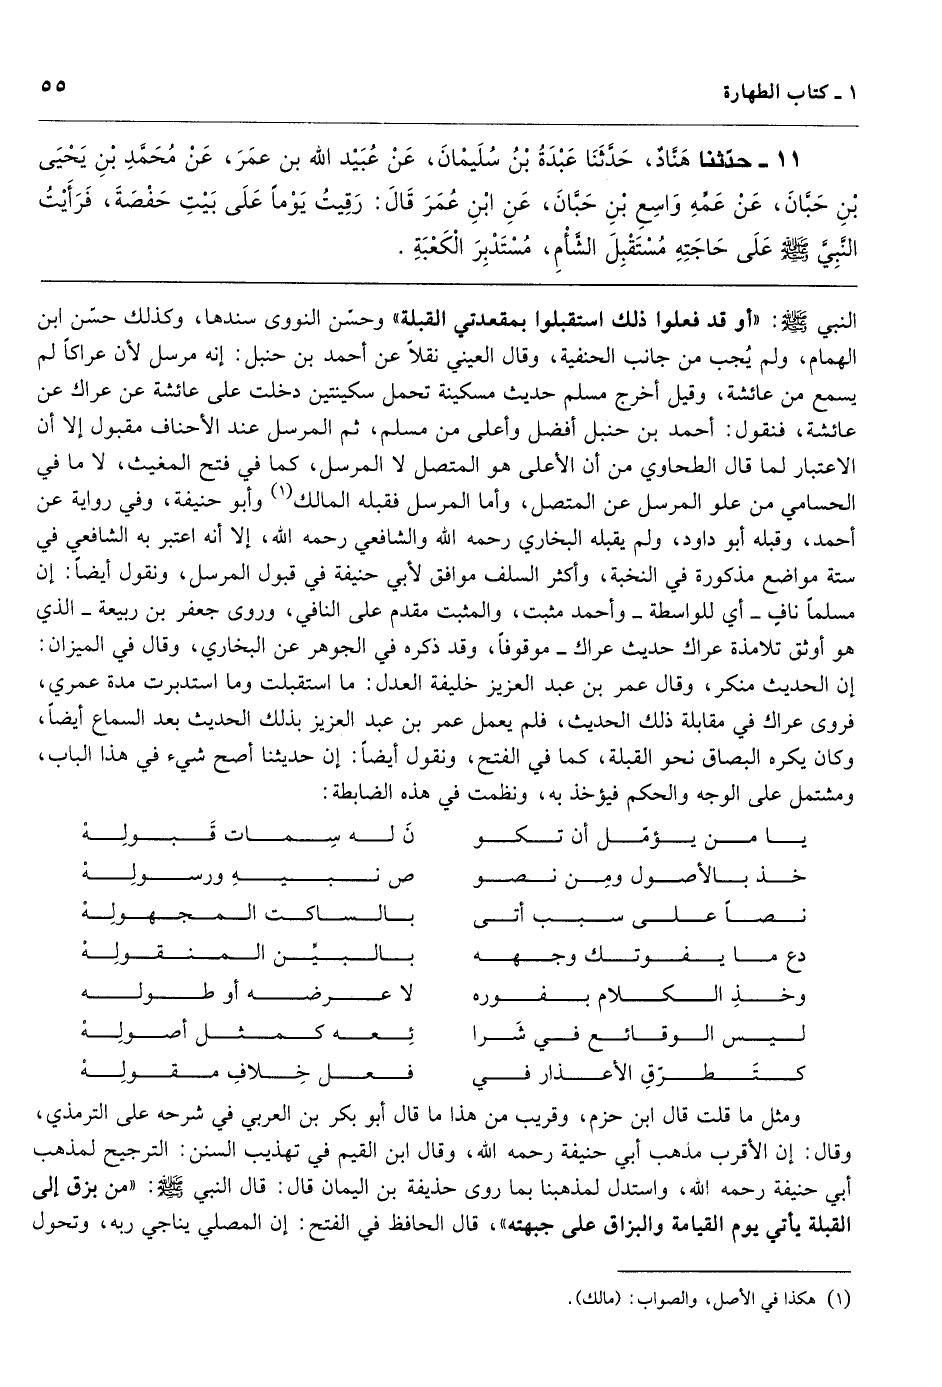 ١ ـ كتاب الطهارة ٥٥
١١ ـ حدّثنا هَنَّادٌ، حَدَّثَنَا عَبْدَةُ بْنُ سُلَيمْانَ، عَنْ عُبَيْد الله بن عمَرَ، عَنْ مُحَمَّدِ بْنِ يَحْيَى
بْنِ حَبَّانَ، عَنْ عَمِّهِ وَاسِعِ بْنِ حَبَّانَ، عَنِ ابْنِ عُمَرَ قَالَ: رَقِيتُ يَوْماً عَلَى بَيْتِ حَفْصَةَ، فَرَأَيْتُ
النَّبِيَّ ﷺ عَلَى حَاجَتِهِ مُسْتَقْبِلَ الشَّأْمِ، مُسْتَدْبِرَ الْكَعْبَةِ .
النبي ﷺ: «أو قد فعلوا ذلك استقبلوا بمقعدتي القبلة» وحسّن النووى سندها، وكذلك حسّن ابن
الهمام، ولم يُجب من جانب الحنفية، وقال العيني نقلاً عن أحمد بن حنبل: إنه مرسل لأن عراكاً لم
يسمع من عائشة، وقيل أخرج مسلم حديث مسكينة تحمل سكينتين دخلت على عائشة عن عراك عن
عائشة، فنقول: أحمد بن حنبل أفضل وأعلى من مسلم، ثم المرسل عند الأحناف مقبول إلا أن
الاعتبار لما قال الطحاوي من أن الأعلى هو المتصل لا المرسل، كما في فتح المغيث، لا ما في
الحسامي من علو المرسل عن المتصل، وأما المرسل فقبله المالك(١) وأبو حنيفة، وفي رواية عن
أحمد، وقبله أبو داود، ولم يقبله البخاري رحمه الله والشافعي رحمه الله، إلا أنه اعتبر به الشافعي في
ستة مواضع مذكورة في النخبة، وأكثر السلف موافق لأبي حنيفة في قبول المرسل، ونقول أيضاً: إن
مسلماً نافٍ ـ أي للواسطة ـ وأحمد مثبت، والمثبت مقدم على النافي، وروى جعفر بن ربيعة ـ الذي
هو أوثق تلامذة عراك حديث عراك ـ موقوفاً، وقد ذكره في الجوهر عن البخاري، وقال في الميزان:
إن الحديث منكر، وقال عمر بن عبد العزيز خليفة العدل: ما استقبلت وما استدبرت مدة عمري،
فروى عراك في مقابلة ذلك الحديث، فلم يعمل عمر بن عبد العزيز بذلك الحديث بعد السماع أيضاً،
وكان يكره البصاق نحو القبلة، كما في الفتح، ونقول أيضاً: إن حديثنا أصح شيء في هذا الباب،
ومشتمل على الوجه والحكم فيؤخذ به، ونظمت في هذه الضابطة:
يا من يؤمّل أن تكو نَ له سمات قَبولهْ
خذ بالأصول ومِن نصو ص نبيه ورسولهْ
نصاً على سبب أتى بالساكت المجهولهْ
دع ما يفوتك وجهه بالبيِّن المنقولهْ
وخذِ الكلام بفوره لا عرضه أو طوله
ليس الوقائع في شَرا ئِعه كمثل أصولهْ
كتَطرّقِ الأعذار في فعل خِلافِ مقولهْ
ومثل ما قلت قال ابن حزم، وقريب من هذا ما قال أبو بكر بن العربي في شرحه على الترمذي،
وقال: إن الأقرب مذهب أبي حنيفة رحمه الله، وقال ابن القيم في تهذيب السنن: الترجيح لمذهب
أبي حنيفة رحمه الله، واستدل لمذهبنا بما روى حذيفة بن اليمان قال: قال النبي ﷺ: «من بزق إلى
القبلة يأتي يوم القيامة والبزاق على جبهته»، قال الحافظ في الفتح: إن المصلي يناجي ربه، وتحول
(١) هكذا في الأصل، والصواب: (مالك).